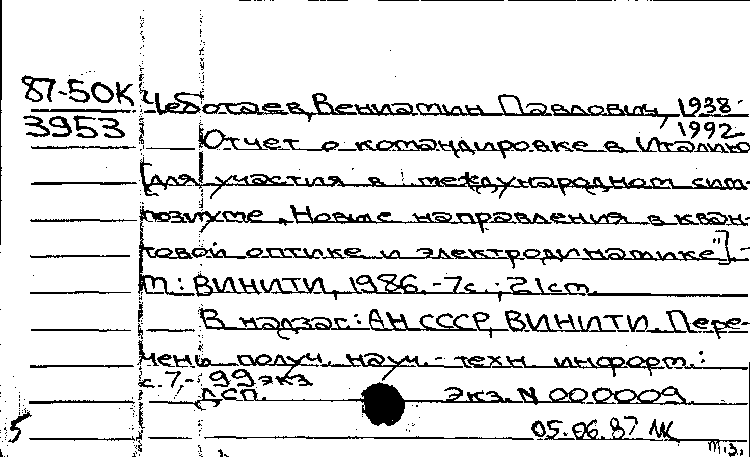 87-50К Чеботаев, Вениамин Павлович, 1938-
3953 1992
Отчет о командировке в Италию
[для участия в международном сим-
позиуме "Новые направления в кван-
товой оптике и электродинамике"].-
М.: ВИНИТИ, 1986.-7с.; 21см.
В надзаг.: АН СССР, ВИНИТИ. Пере-
чень получ. науч.-техн. информ.:
с.7.- 99 экз
ДСП. Экз. N 000009.
5 05.06.87
м.з.